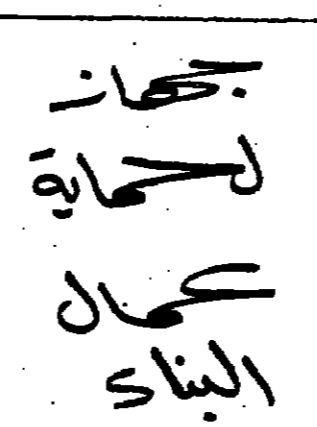 جهاز
لحماية
عمال
البناء